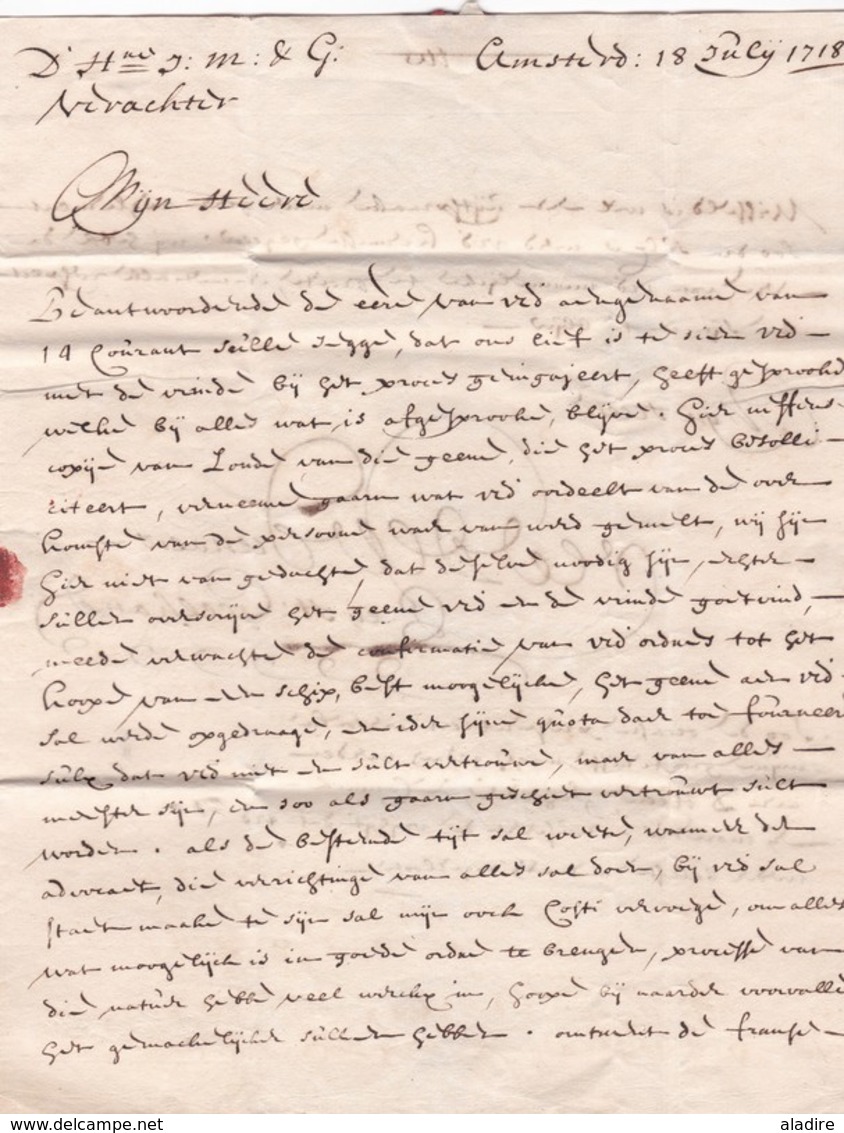 D' Hre J: M: & G:
Amsterd: 18 Julij 1718
Verachter
Mijn Heere
Beantwoordende de eere van ued aengenaame van
14 Courant sulle segge, dat ons lief is te sien ued
met de vrinde bij het proces geingajeert, heeft gesprooke
welke bij alles wat is afgesprooke, blijve. Hier neffens
copije van Londe van die geene, die het proces besolli-
citeert, verneeme gaarn wat ued oordeelt van de over
komste van de persoone waer van werd gemelt, wij sijn
hier niet van gedachte, dat deselve noodig sije, echter
sulle overscrijve het geene ued en de vrinde goetvind,
meede verwachte de confirmatie van ued orders tot het
koope van een schip, best moogelijcke, het geene aen ued
sal werde opgedraage, en ider sijne quota daer toe fourneer
sulx dat ued niet en sult vertrouwe, maer van alles
meester sijn, en soo als gaarn geschiet vertrouwt sult
worden. als de bestemde tijt sal weete, wanneer den
advocaet, die verrichtinge van alles sal doen, bij ued sal
staet maake te sijn sal mijn oock Costi vervoege, om alles
wat moogelijck is in goede order te brengen, processe van
die natuer hebbe veel werckx in, hoope bij naarder voorvalle
het gemackelijcker sulle hebbe. omtrent de franse
delcampe.net
aladire